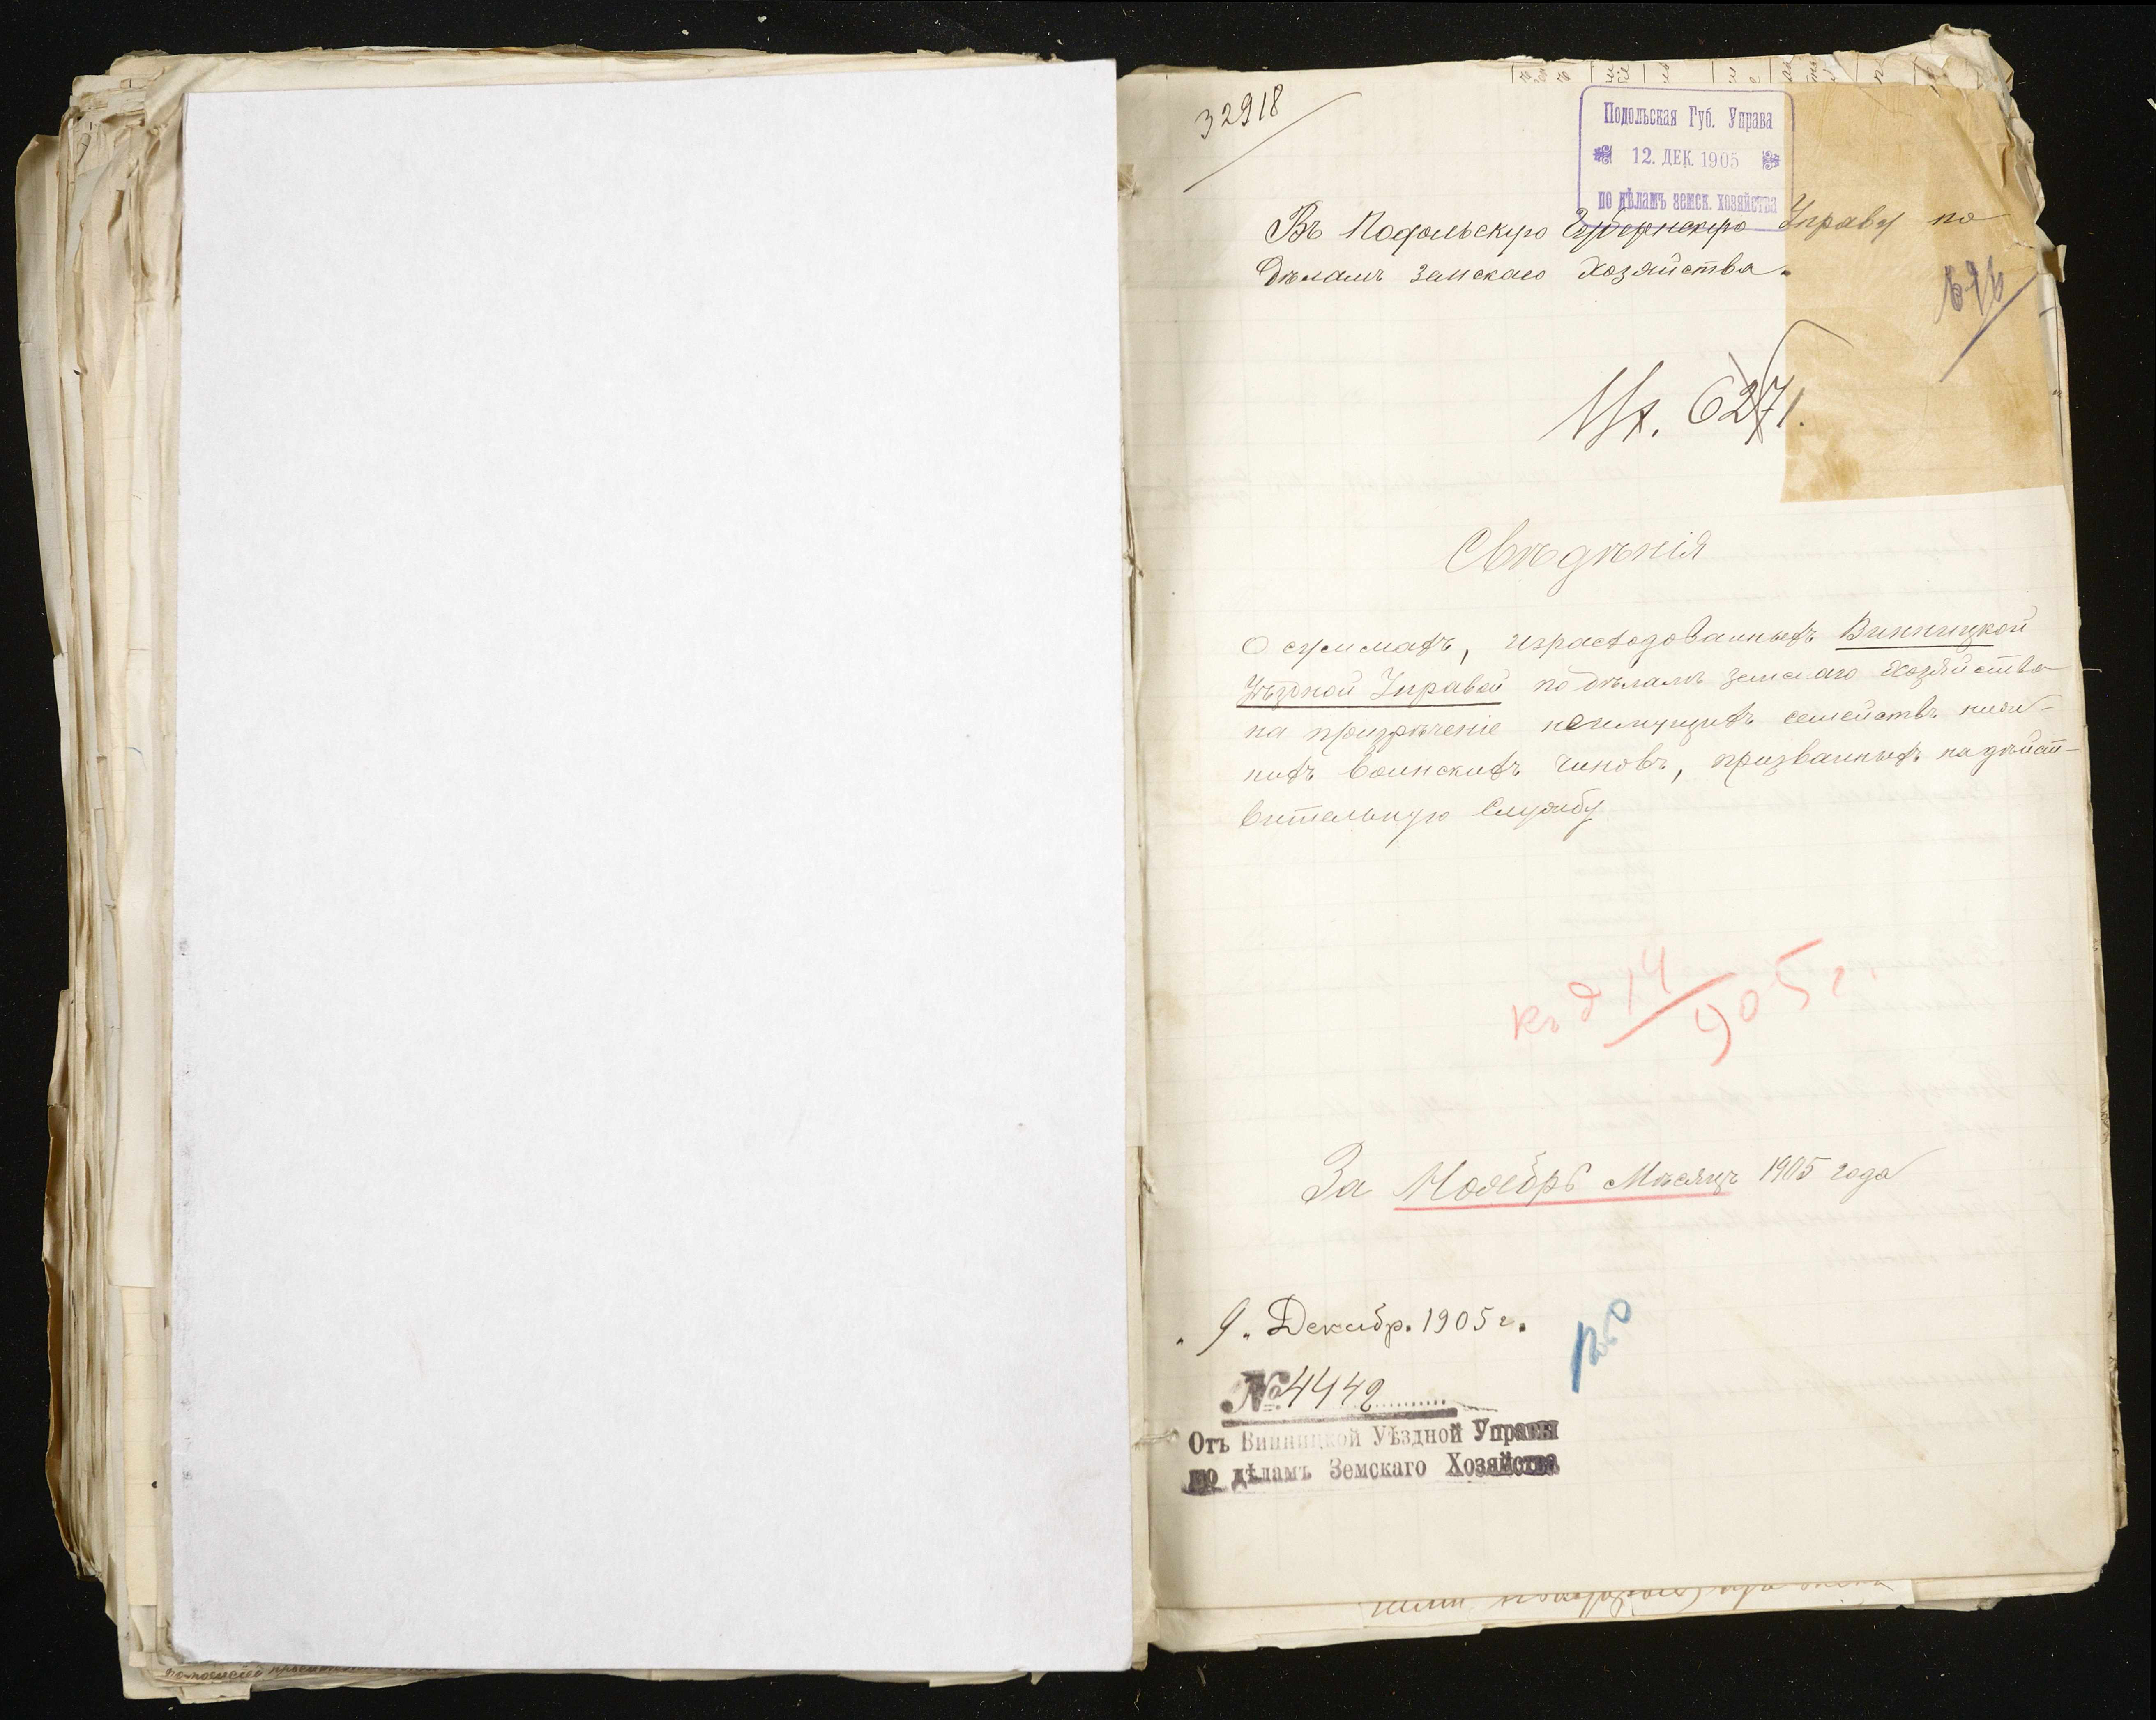 32918
Подольская Губ. Управа
12. ДЕК. 1905
по дѣламъ земск. хозяйства
Въ Подольскую Губернскую Управу по
Дѣламъ Земскаго Хозяйства.
6271.
Свѣдѣнія
О суммахъ, израсходованныхъ Винницкой
Уѣздной Управой по дѣламъ Земскаго Хозяйства
на призрѣніе неимущихъ семействъ ниж-
нихъ воинскихъ чиновъ, призванныхъ на дѣйст-
вительную Службу
къ д 14/905 г.
За Ноябрь Мѣсяцъ 1905 года
"9" Декабр. 1905 г.
№ 4442
Отъ Винницкой Уѣздной Управы
по дѣламъ Земскаго Хозяйства